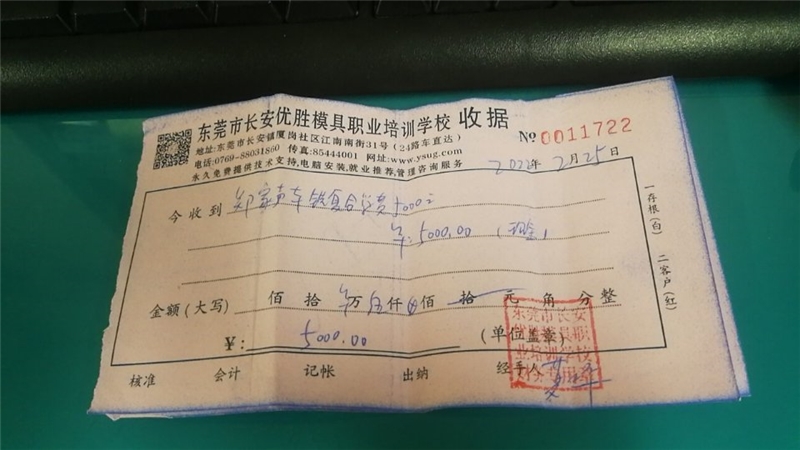 东莞市长安优胜模具职业培训学校 收据
地址:东莞市长安镇厦岗社区江南南街31号(24路车直达)
№ 0011722
电话:0769-88031860 传真:85444001 网址:www.ysug.com
永久免费提供技术支持,电脑安装,就业推荐,管理咨询服务
2022年 2月25日
今收到 郑家声车铣复合学费5000元
¥:5000.00 (现金)
金额(大写) 佰 拾 万伍仟 佰 拾 元 角 分整
¥: 5000.00 (单位盖章)
核准 会计 记帐 出纳 经手人
一存根(白) 二客户(红)
东莞市长安
优胜模具职
业培训学校
财务专用章